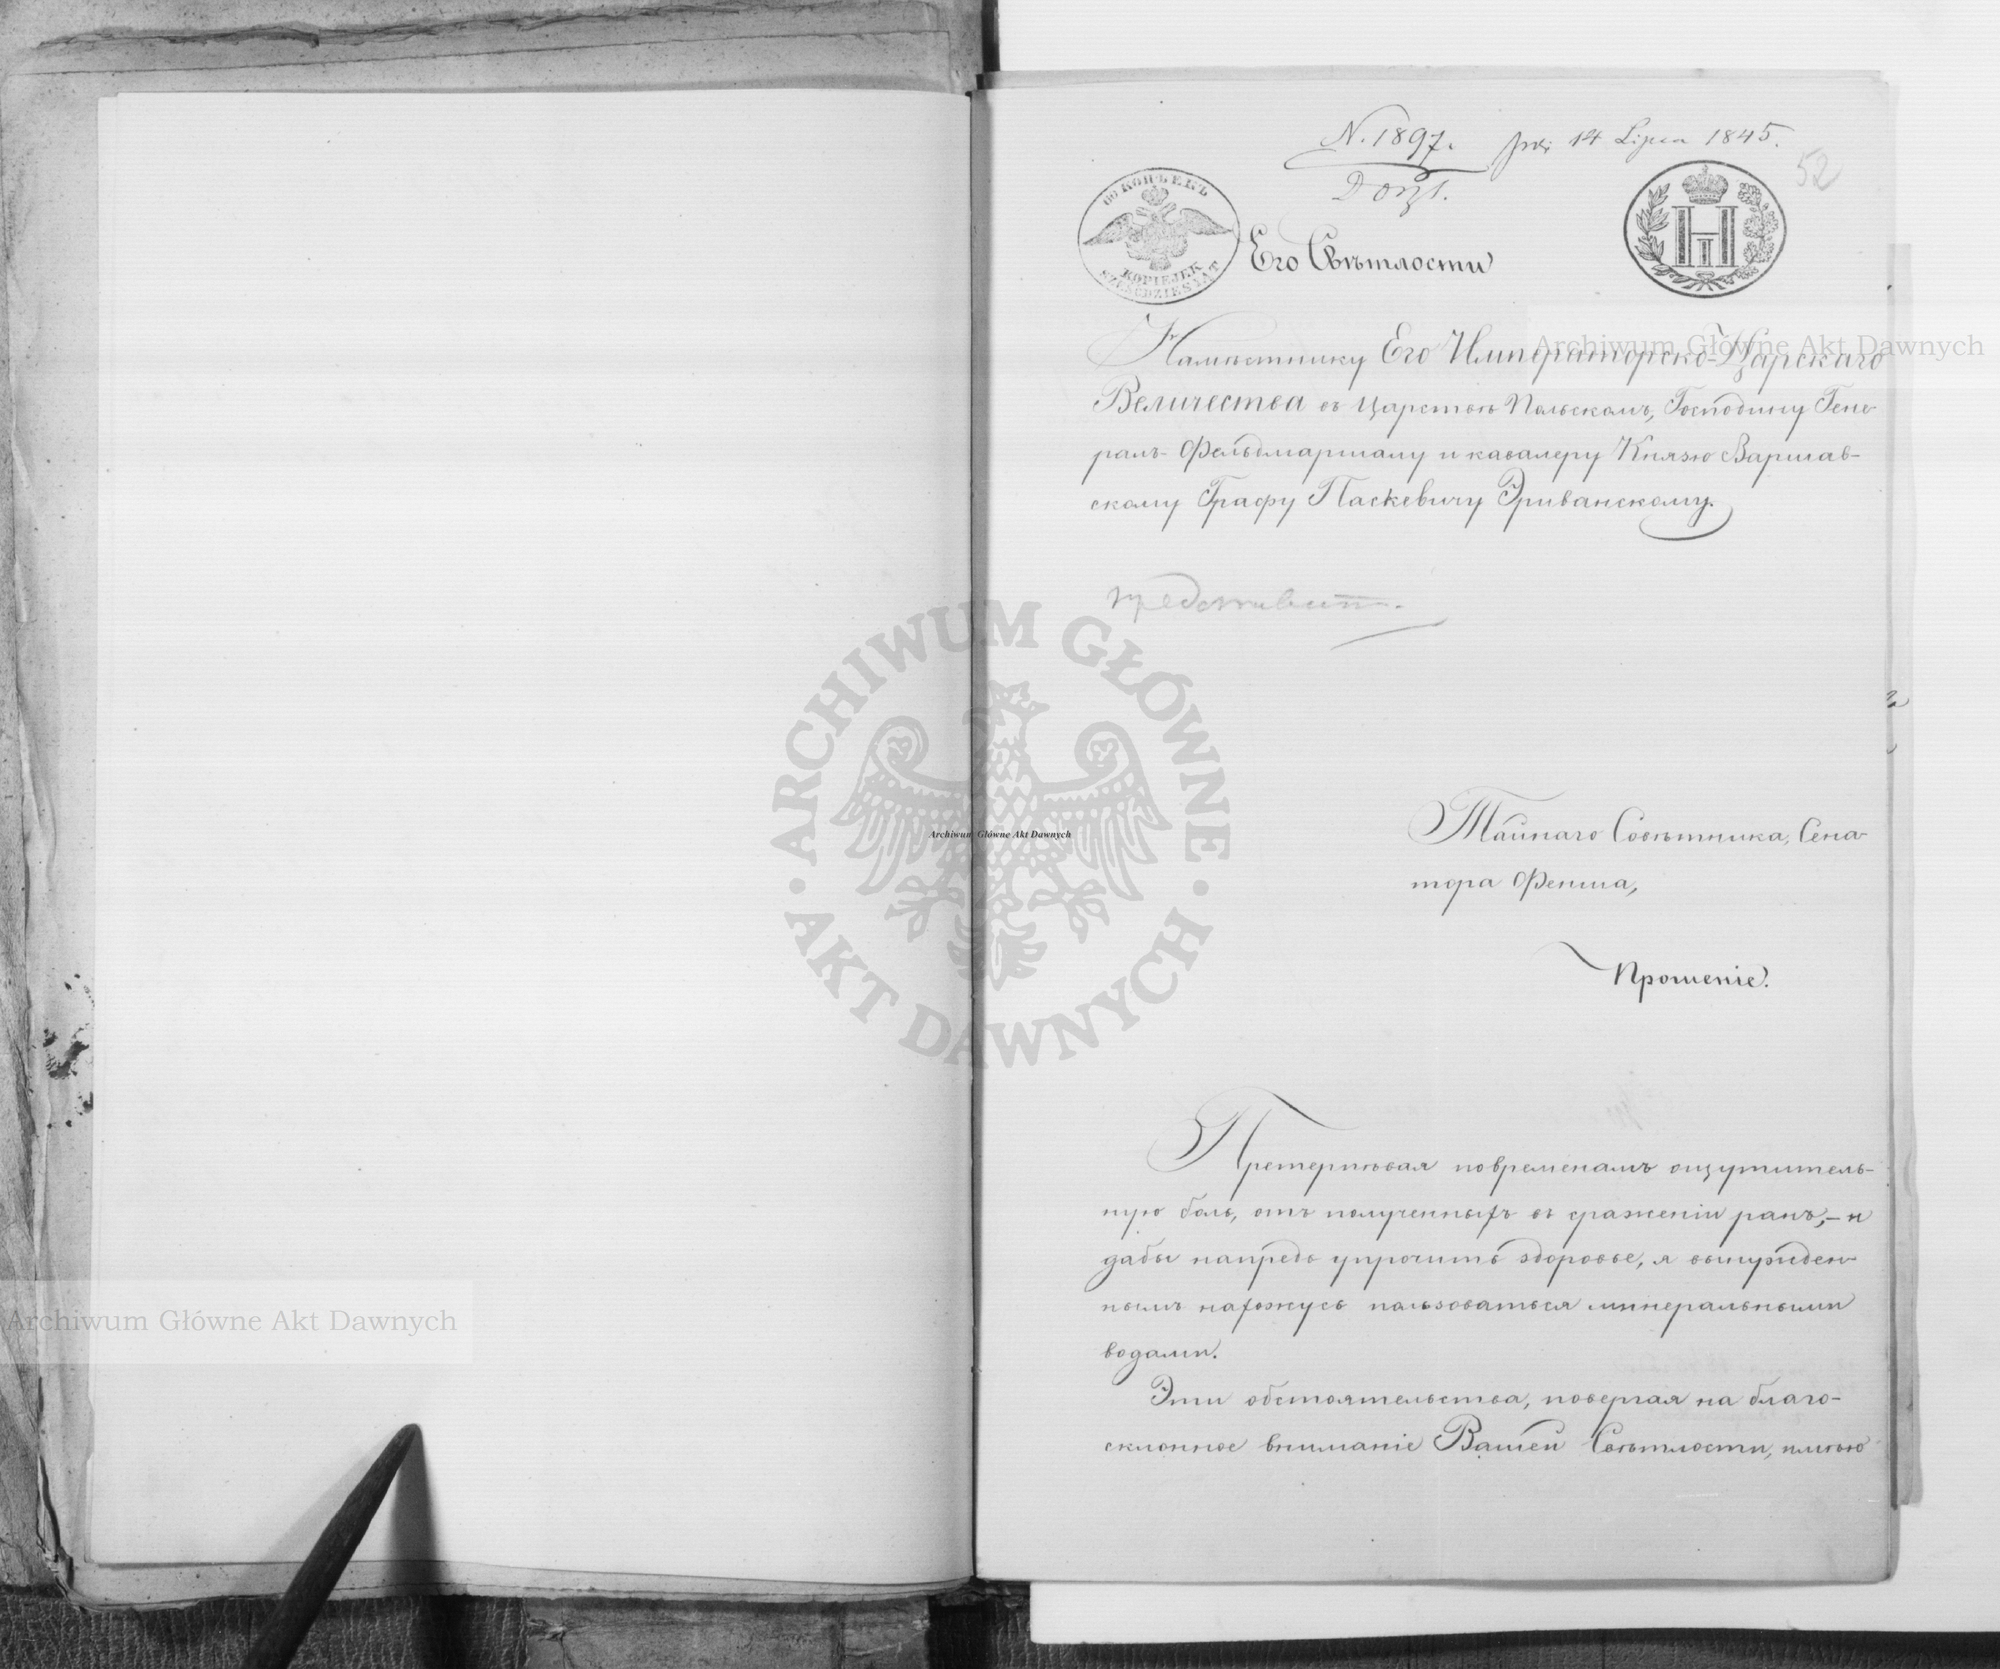 N. 1897. 14 Lipca 1845.
52
60 КОПѢЕКЪ
KOPIEJEK
SZEŚĆDZIESIĄT
Его Свѣтлости
Намѣстнику Его Императорско-Царскаго
Величества въ Царствѣ Польскомъ, Господину Гене-
ралъ-Фельдмаршалу и кавалеру Князю Варшав-
скому Графу Паскевичу Эриванскому.
представить.
Тайнаго Совѣтника, Сена-
тора Фенша,
Прошеніе.
Претерпѣвая повременамъ ощутитель-
ную боль, отъ полученныхъ въ сраженіи ранъ,- и
дабы напредь упрочить здоровье, я вынужден-
нымъ нахожусь пользоваться минеральными
водами.
Эти обстоятельства, повергая на благо-
склонное вниманіе Вашей Свѣтлости, имѣю
Archiwum Główne Akt Dawnych
ARCHIWUM GŁÓWNE
AKT DAWNYCH
Archiwum Główne Akt Dawnych
Archiwum Główne Akt Dawnych